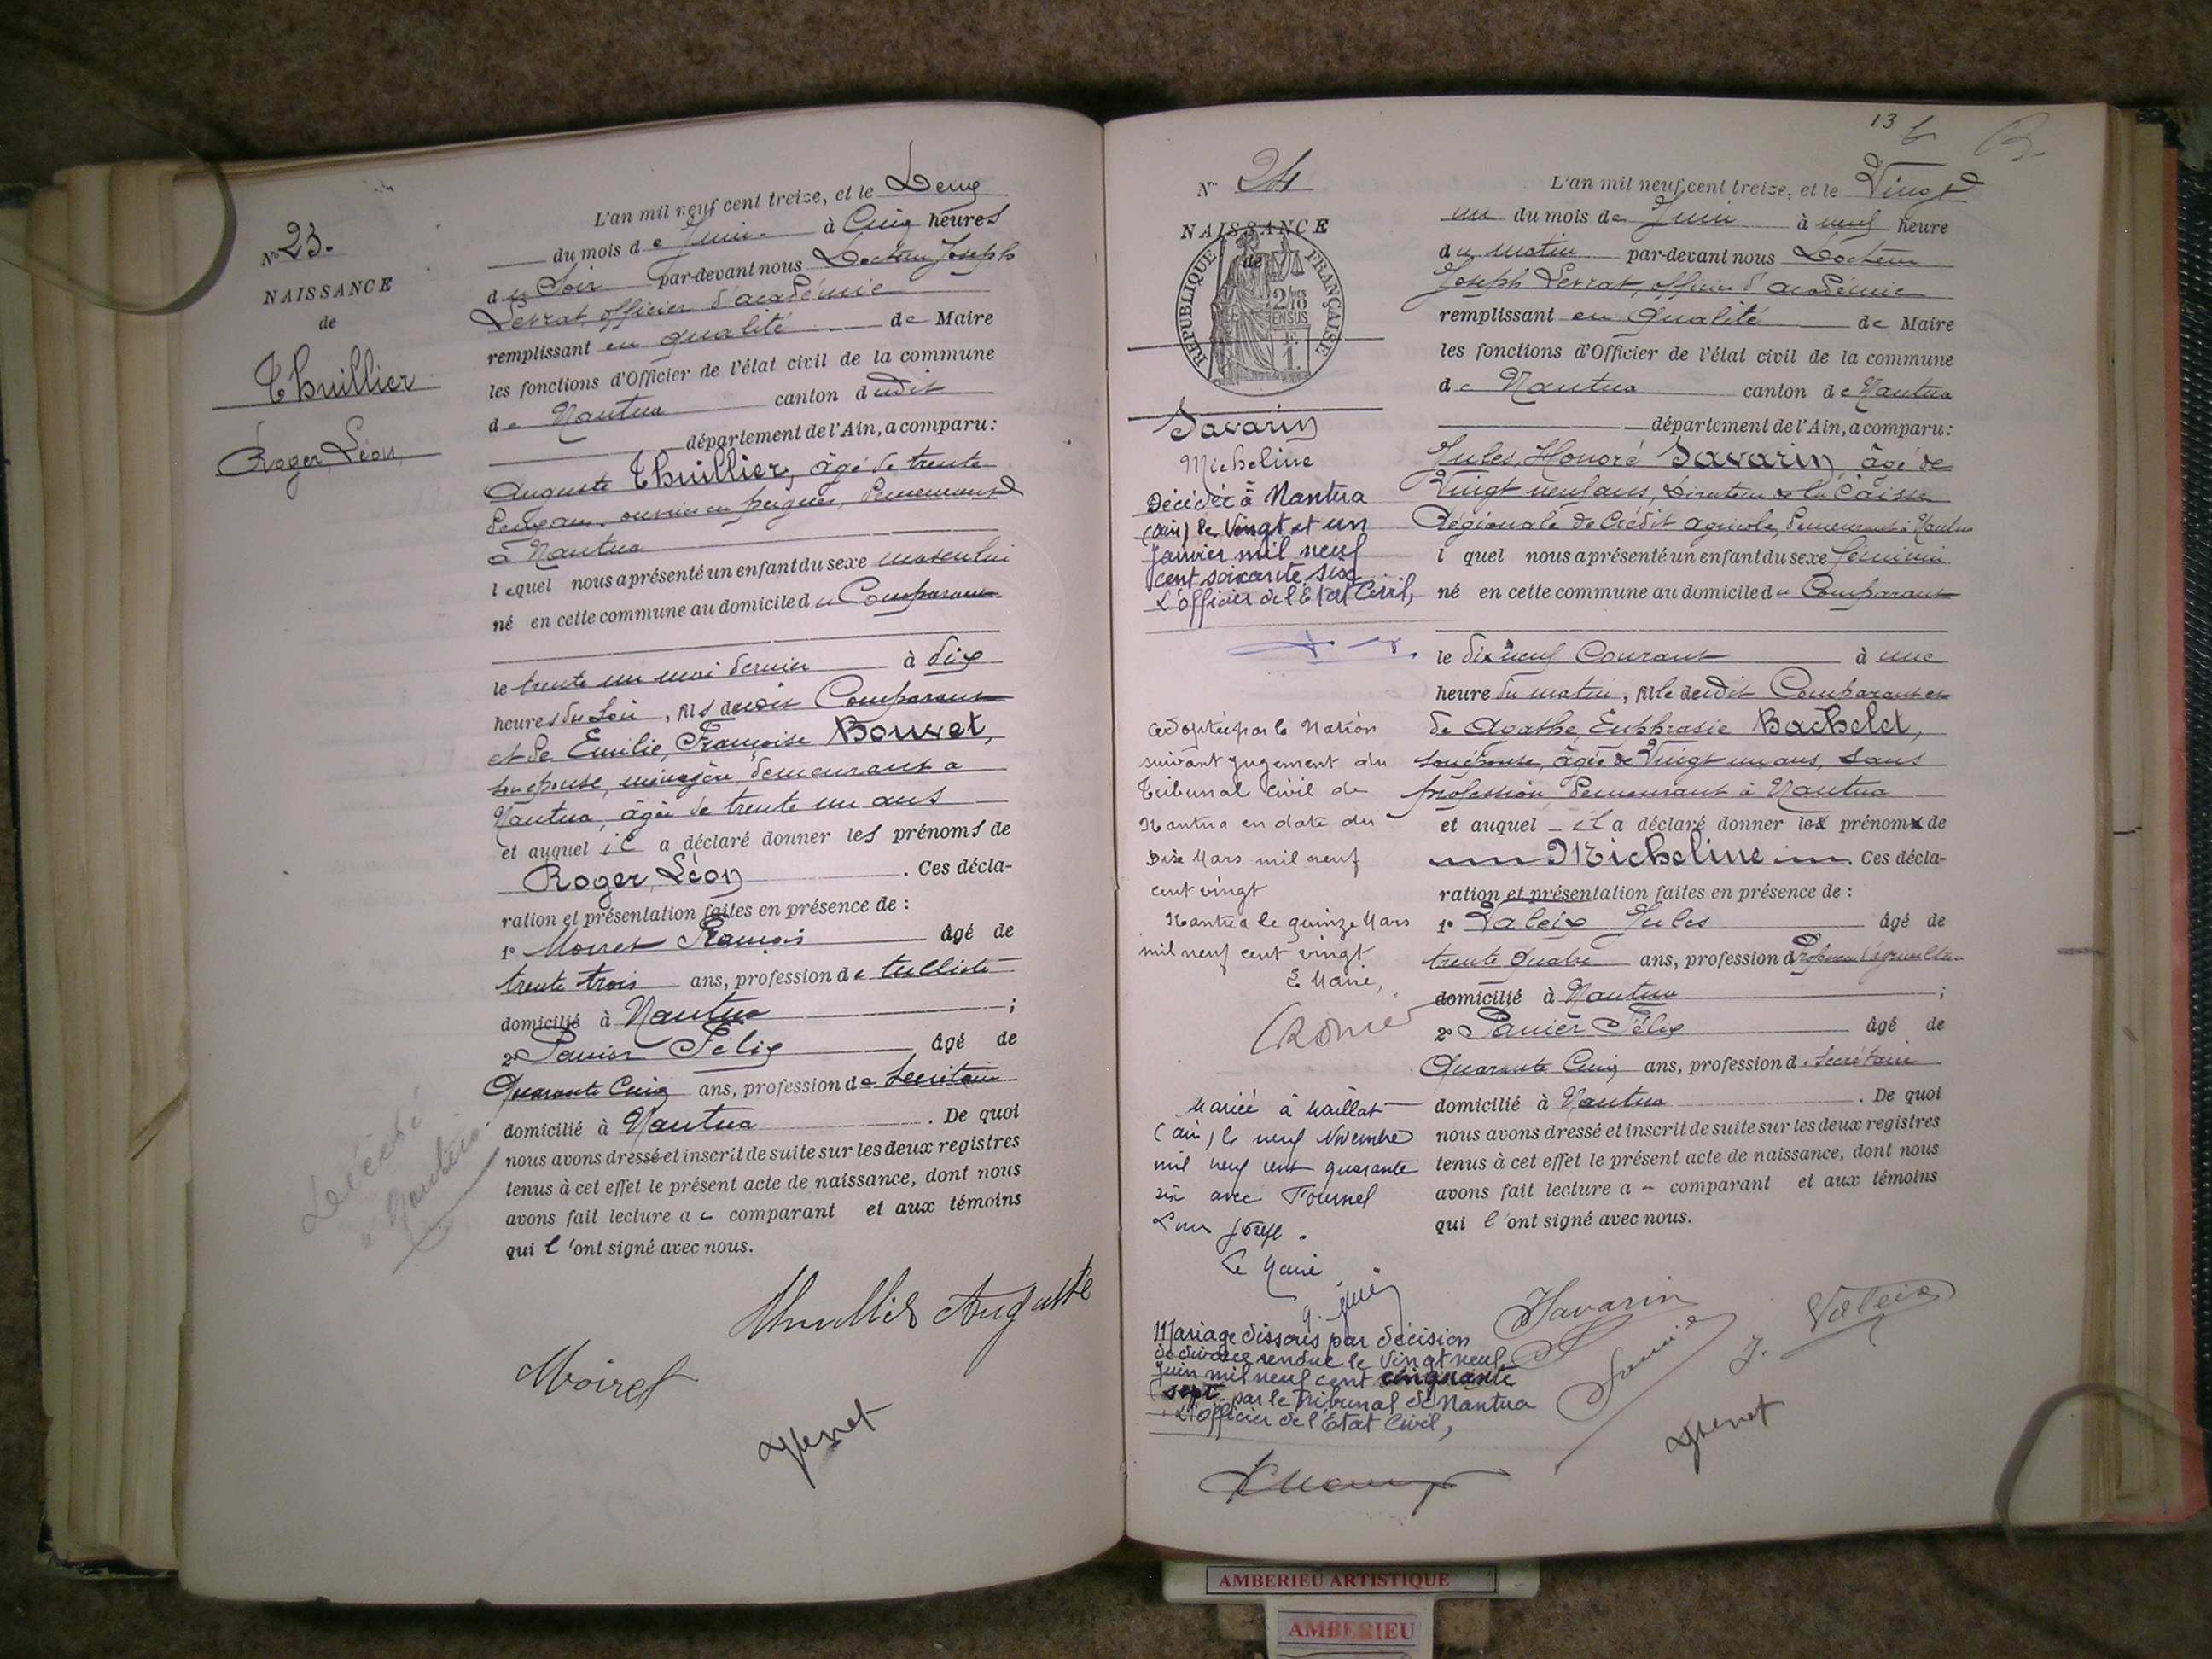 N° 23.
NAISSANCE
de
Thuillier
Roger, Léon
L'an mil neuf cent treize, et le Deux
du mois de Juin à Cinq heures
du Soir par-devant nous Docteur Joseph
officier d'académie
remplissant en qualité de Maire
les fonctions d'Officier de l'état civil de la commune
de Nantua canton dudit
département de l'Ain, a comparu:
Auguste Thuillier, âgé de trente
ouvrier en peignes, demeurant
à Nantua
lequel nous a présenté un enfant du sexe masculin
né en cette commune au domicile du Comparant
le trente un mai dernier à dix
heures du Soir, fils dudit Comparant
et de Emilie, Françoise Bouvet,
son épouse, ménagère demeurant a
Nantua, âgée de trente un ans
et auquel il a déclaré donner les prénoms de
Roger, Léon . Ces décla-
ration et présentation faites en présence de :
1° François âgé de
trente trois ans, profession de tulliste
domicilié à Nantua ;
2° Félix âgé de
Quarante Cinq ans, profession de Secrétaire
domicilié à Nantua . De quoi
nous avons dressé et inscrit de suite sur les deux registres
tenus à cet effet le présent acte de naissance, dont nous
avons fait lecture au comparant et aux témoins
qui l'ont signé avec nous.
Décédé
Thuillier Auguste
13
N° 24
NAISSANCE
de
RÉPUBLIQUE FRANÇAISE
Savarin
Micheline
Décédée à Nantua
(Ain) le Vingt et un
Janvier mil neuf
cent soixante six
L'officier de l'Etat Civil,
Adoptée par la Nation
suivant jugement du
Tribunal Civil de
Nantua en date du
Dix Mars mil neuf
cent vingt
Nantua le quinze Mars
mil neuf cent vingt
Le Maire,
Mariée à Maillat
(Ain) le neuf Novembre
mil neuf cent quarante
six avec Tournel
Louis Joseph.
Le Maire
Mariage dissous par décision
de divorce rendue le Vingt neuf
Juin mil neuf cent cinquante
sept par le tribunal de Nantua
L'officier de l'Etat Civil,
L'an mil neuf cent treize, et le Vingt
un du mois de Juin à neuf heure
du matin par-devant nous Docteur
Joseph officier d'académie
remplissant en qualité de Maire
les fonctions d'Officier de l'état civil de la commune
de Nantua canton de Nantua
département de l'Ain, a comparu:
Jules, Honoré Savarin, âgé de
Vingt neuf ans, Directeur de la Caisse
Régionale de Crédit agricole, demeurant à Nantua
lequel nous a présenté un enfant du sexe féminin
né en cette commune au domicile du Comparant
le dix neuf Courant à une
heure du matin, fille dudit Comparant et
de Agathe, Euphrasie Bachelet,
son épouse, âgée de Vingt un ans, sans
profession, demeurant à Nantua
et auquel il a déclaré donner les prénoms de
Micheline . Ces décla-
ration et présentation faites en présence de :
1° Valeix Jules âgé de
trente quatre ans, profession de Professeur d'agriculture
domicilié à Nantua ;
2° Félix âgé de
Quarante Cinq ans, profession de Secrétaire
domicilié à Nantua . De quoi
nous avons dressé et inscrit de suite sur les deux registres
tenus à cet effet le présent acte de naissance, dont nous
avons fait lecture au comparant et aux témoins
qui l'ont signé avec nous.
Savarin
J. Valeix
AMBERIEU ARTISTIQUE
AMBERIEU